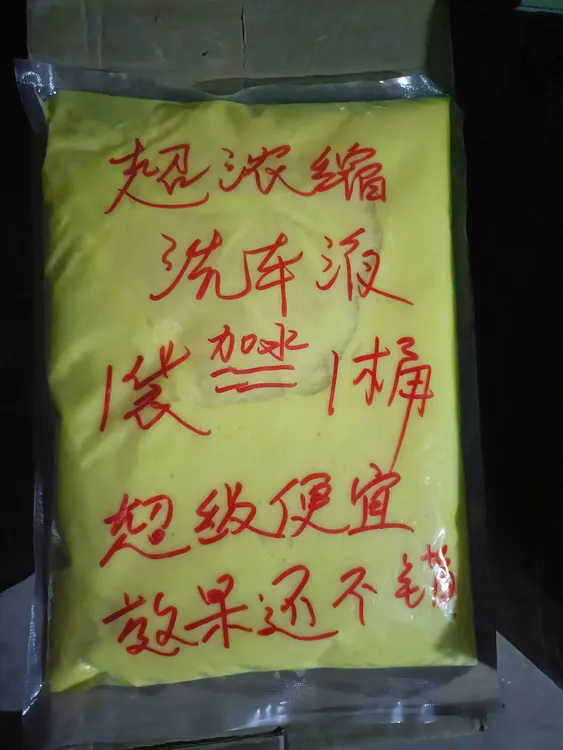 超浓缩
洗车液
1袋 加水 = 1桶
超级便宜
效果还不错